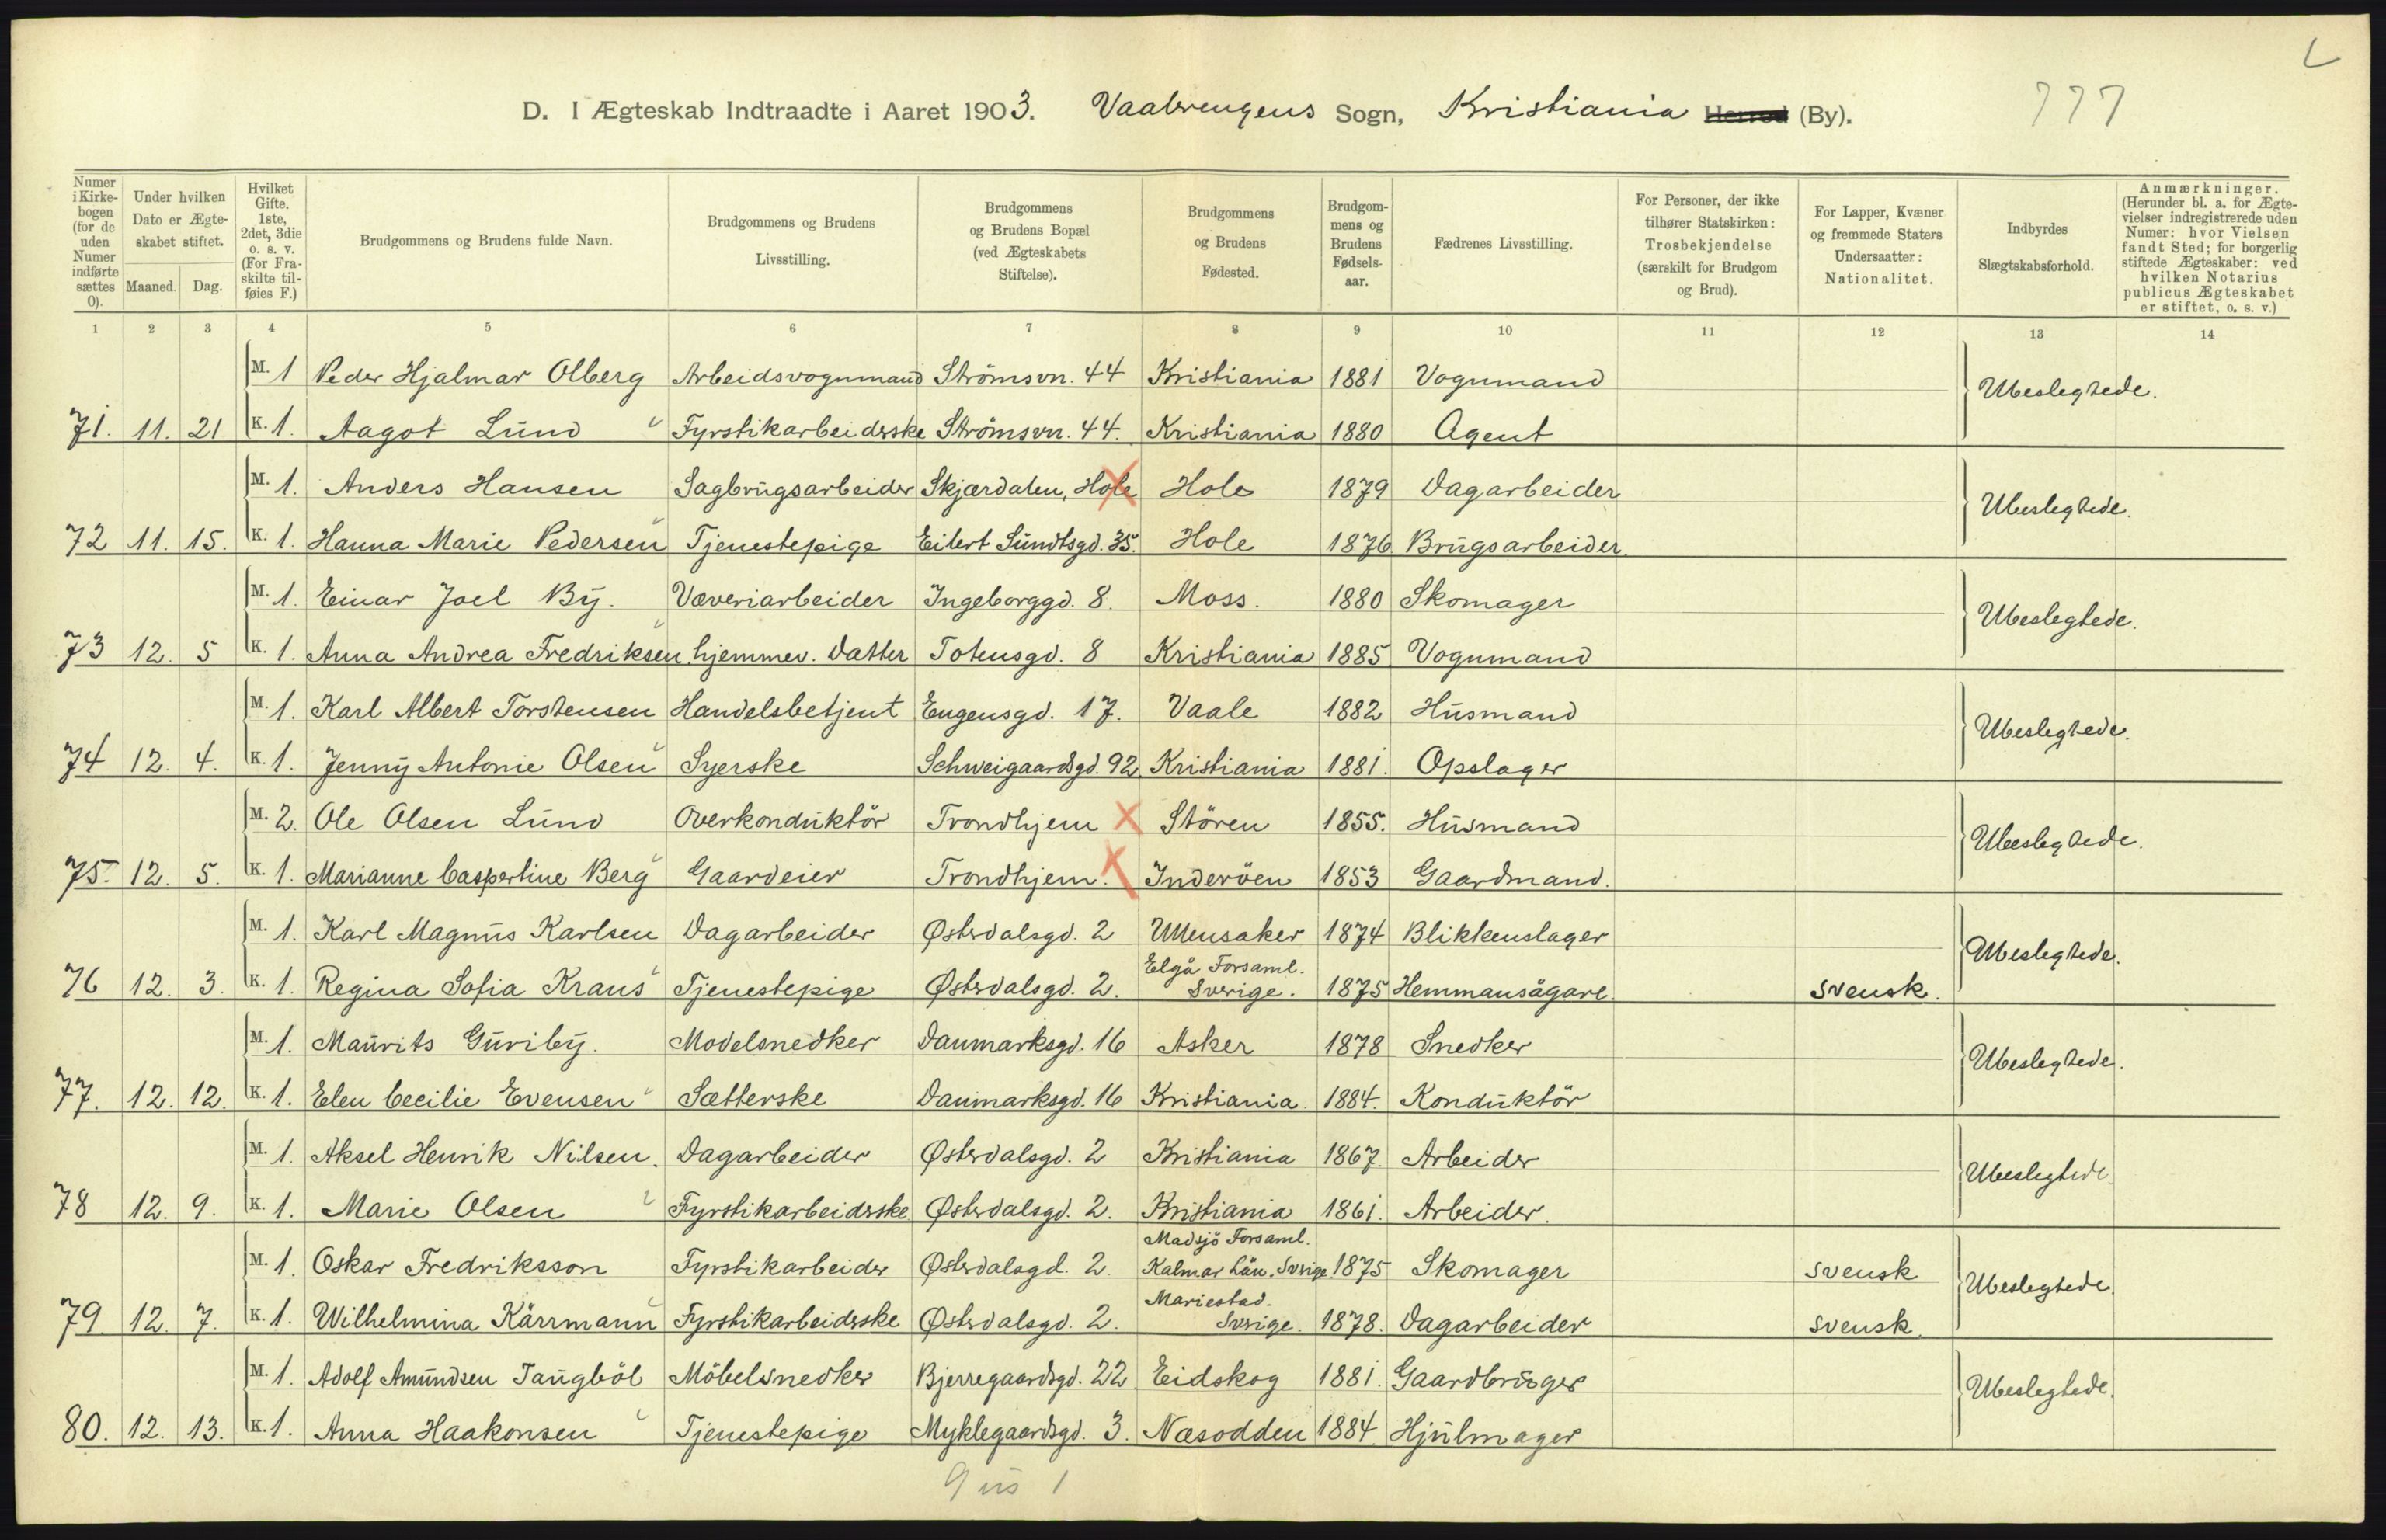 L
D. I Ægteskab Indtraadte i Aaret 1903. Vaalerengens Sogn, Kristiania Herred (By).
777
Numer i Kirkebogen (for de uden Numer indførte sættes 0).
Under hvilken Dato er Ægteskabet stiftet.
Maaned. Dag.
Hvilket Gifte. 1ste, 2det, 3die o. s. v. (For Fraskilte tilføies F.)
Brudgommens og Brudens fulde Navn.
Brudgommens og Brudens Livsstilling.
Brudgommens og Brudens Bopæl (ved Ægteskabets Stiftelse).
Brudgommens og Brudens Fødested.
Brudgommens og Brudens Fødselsaar.
Fædrenes Livsstilling.
For Personer, der ikke tilhører Statskirken: Trosbekjendelse (særskilt for Brudgom og Brud).
For Lapper, Kvæner og fremmede Staters Undersaatter: Nationalitet.
Indbyrdes Slægtskabsforhold.
Anmærkninger. (Herunder bl. a. for Ægtevielser indregistrerede uden Numer: hvor Vielsen fandt Sted; for borgerlig stiftede Ægteskaber: ved hvilken Notarius publicus Ægteskabet er stiftet, o. s. v.)
1 2 3 4 5 6 7 8 9 10 11 12 13 14
M. 1 Peder Hjalmar Olberg Arbeidsvognmand Strömsvn. 44 Kristiania 1881 Vognmand Ubeslegtede.
71. 11. 21 K. 1. Aagot Lund Fyrstikarbeiderske Strömsvn. 44. Kristiania 1880 Agent
M. 1. Anders Hansen Sagbrugsarbeider Skjærdalen, Hole Hole 1879 Dagarbeider Ubeslegtede.
72 11. 15. K. 1. Hanna Marie Pedersen Tjenestepige Eilert Sundtsgd. 35. Hole 1876 Brugsarbeider.
M. 1. Einar Joel By. Væveriarbeider Ingeborggd. 8. Moss. 1880 Skomager Ubeslegtede.
73 12. 5 K. 1. Anna Andrea Fredriksen hjemmev. Datter Totensgd. 8 Kristiania 1885 Vognmand
M. 1. Karl Albert Torstensen Handelsbetjent Eugensgd. 17. Vaale 1882 Husmand Ubeslegtede.
74 12. 4. K. 1. Jenny Antonie Olsen Syerske Schweigaardsgd. 92 Kristiania 1881. Opslager
M. 2. Ole Olsen Lund Overkonduktör Trondhjem Stören 1855. Husmand Ubeslegtede.
75. 12. 5. K. 1. Marianne Caspertine Berg Gaardeier Trondhjem. Inderöen 1853 Gaardmand.
M. 1. Karl Magnus Karlsen Dagarbeider Østerdalsgd. 2 Ullensaker 1874 Blikkenslager Ubeslegtede.
Elgå Forsaml.
76 12. 3. K. 1. Regina Sofia Kraus Tjenestepige Østerdalsgd. 2. Sverige. 1875 Hemmansägare. svensk.
M. 1. Maurits Guriby. Modelsnedker Danmarksgd. 16 Asker 1878 Snedker Ubeslegtede.
77. 12. 12. K. 1. Elen Cecilie Evensen Sætterske Danmarksgd. 16 Kristiania. 1884. Konduktör
M. 1. Aksel Henrik Nilsen. Dagarbeider Østerdalsgd. 2 Kristiania 1867. Arbeider Ubeslegtede
78 12. 9. K. 1. Marie Olsen Fyrstikarbeiderske Østerdalsgd. 2. Kristiania 1861. Arbeider.
Madsjö Forsaml.
M. 1. Oskar Fredriksson Fyrstikarbeider Østerdalsgd. 2. Kalmar län. Sverige 1875 Skomager svensk Ubeslegtede.
Mariestad.
79. 12. 7. K. 1. Wilhelmina Kärrmann Fyrstikarbeiderske Østerdalsgd. 2. Sverige. 1878. Dagarbeider svensk.
M. 1. Adolf Amundsen Taugböl Möbelsnedker Bjerregaardsgd. 22 Eidskog 1881. Gaardbruger Ubeslegtede.
80. 12. 13. K. 1. Anna Haakonsen Tjenestepige Myklegaardsgd. 3. Næsodden 1884. Hjulmager